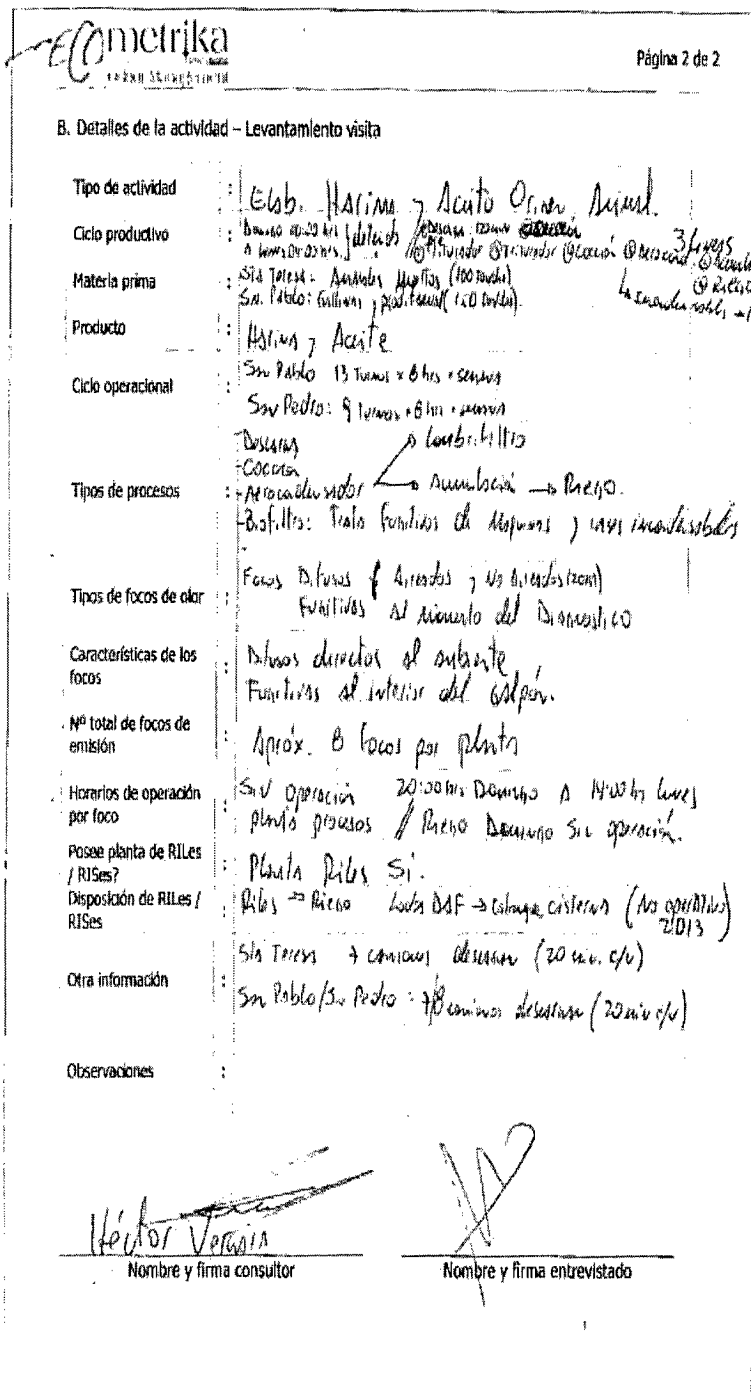 Ecometrika
Página 2 de 2
B. Detalles de la actividad – Levantamiento visita
Tipo de actividad : Elab. Harina y Aceite Origen Animal.
Ciclo productivo : Domingo hrs detenido // Descarga 3 líneas
A lunes hrs. Triturador Cocción
Materia prima : Sta Teresa: Animales Muertos (100 ton/día)
Sn. Pablo: (120 ton/día).
Producto : Harina y Aceite
Ciclo operacional : San Pablo 13 Turnos x 8 hrs * semana
San Pedro: 9 Turnos * 8 hrs * semana
-Descarga → Lombrifiltro
-Cocción
Tipos de procesos : -Aerocondensador → Acumulación → Riego.
-Biofiltro: Trata fugitivas de Máquinas y incondensables
Tipos de focos de olor : Focos Difusos ( Aireados y No Aireados )
Fugitivas al momento del Diagnostico
Características de los focos : Difusos directos al ambiente
Fugitivas al interior del Galpón.
Nº total de focos de emisión : Apróx. 8 focos por planta
Horarios de operación por foco : Sin operación 20:00 hrs Domingo A 14:00 hrs lunes
planta procesos // Riego Domingo Sin operación.
Posee planta de RILes / RISes? : Planta Riles Sí.
Disposición de RILes / RISes : Riles → Riego Lodos DAF → cisterna (No operativo) 2013
Otra información : Sta Teresa 7 camiones descargan (20 min. c/u)
San Pablo/San Pedro: 7/8 camiones descargan (20 min c/u)
Observaciones :
Héctor
Nombre y firma consultor
Nombre y firma entrevistado